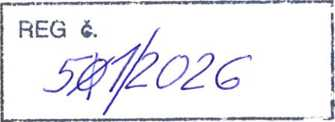 REG č.
501/2026